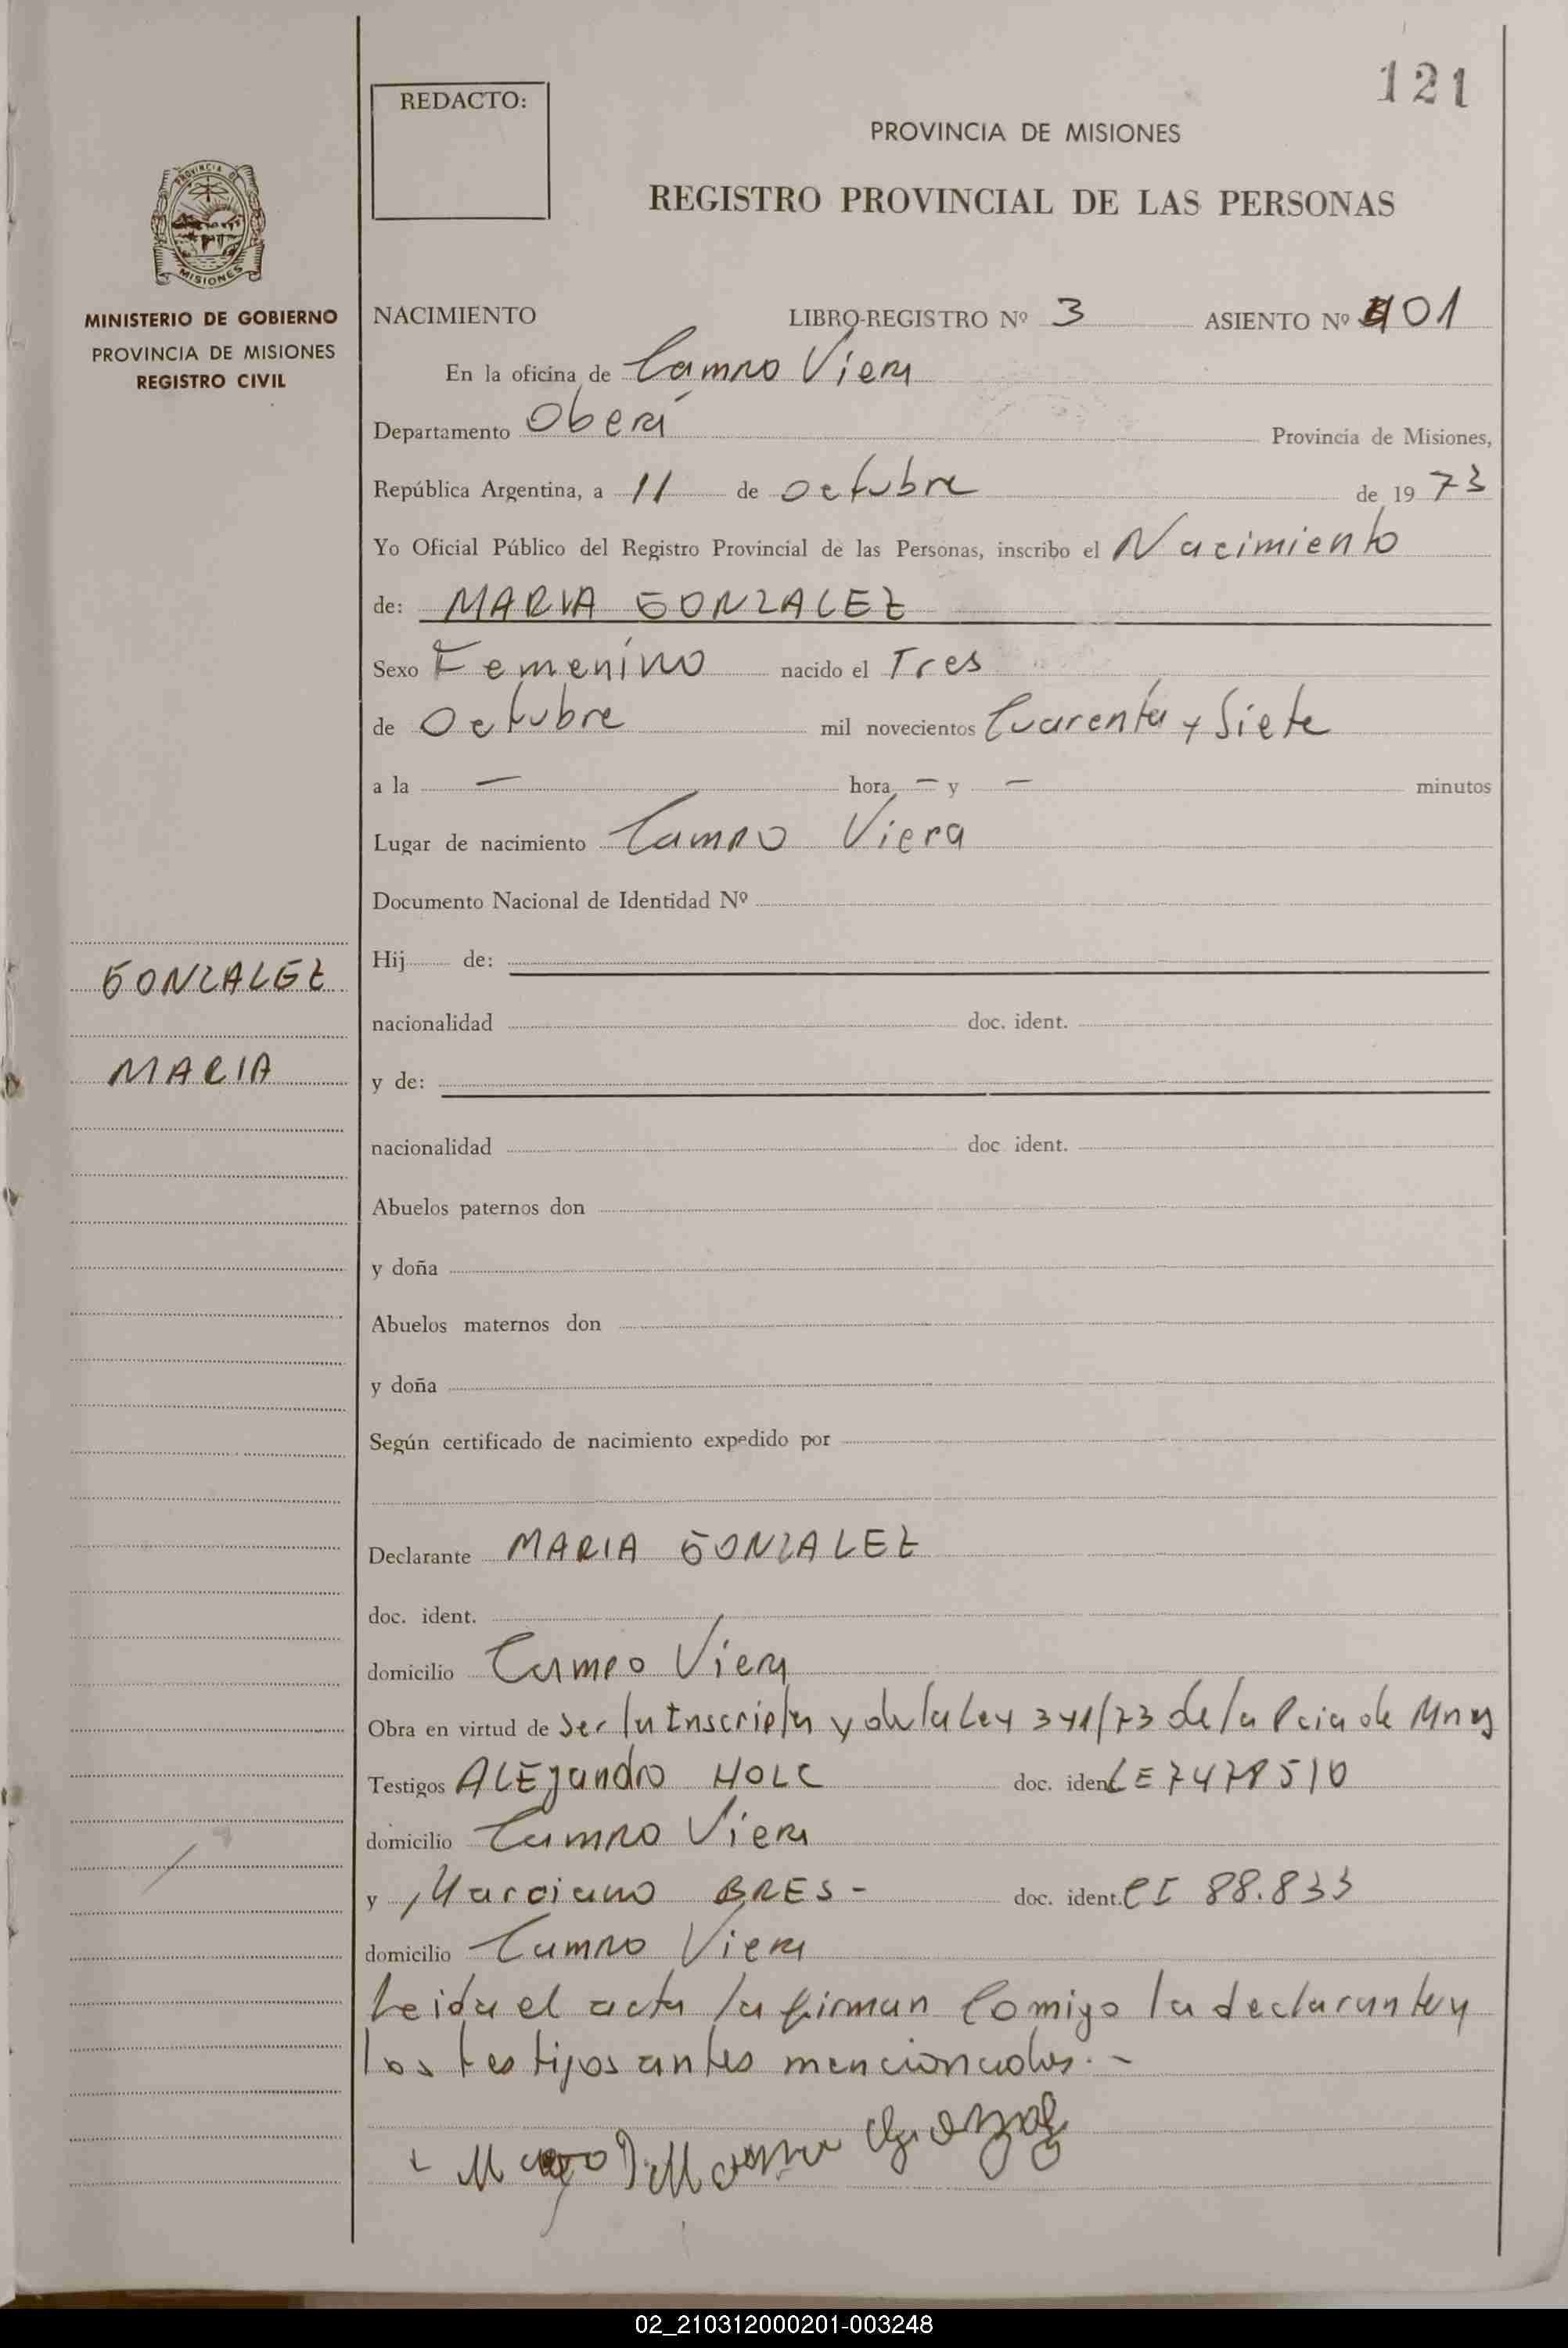 121
REDACTO:
PROVINCIA DE MISIONES
REGISTRO PROVINCIAL DE LAS PERSONAS
PROVINCIA DE
MISIONES
MINISTERIO DE GOBIERNO
PROVINCIA DE MISIONES
REGISTRO CIVIL
NACIMIENTO LIBRO-REGISTRO Nº 3 ASIENTO Nº 401
En la oficina de Campo Viera
Departamento Oberá Provincia de Misiones,
República Argentina, a 11 de octubre de 1973
Yo Oficial Público del Registro Provincial de las Personas, inscribo el Nacimiento
de: MARIA GONZALEZ
Sexo Femenino nacido el Tres
de Octubre mil novecientos Cuarenta y Siete
a la — hora — y — minutos
Lugar de nacimiento Campo Viera
Documento Nacional de Identidad Nº
Hij de:
GONZALEZ
nacionalidad doc. ident.
MARIA
y de:
nacionalidad doc ident.
Abuelos paternos don
y doña
Abuelos maternos don
y doña
Según certificado de nacimiento expedido por
Declarante MARIA GONZALEZ
doc. ident.
domicilio Campo Viera
Obra en virtud de Ser la Inscripta y de la Ley 341/73 de la Pcia de Mnes
Testigos ALEjandro HOLC doc. ident LE 7478510
domicilio Campo Viera
y Marciano BRES - doc. ident. CI 88.833
domicilio Campo Viera
Leida el acta la firman Comigo la declarante y
los testigos antes mencionados. -
02_210312000201-003248